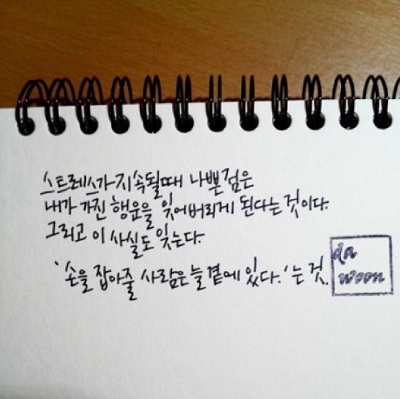 스트레스가 지속될때 나쁜점은
내가 가진 행운을 잊어버리게 된다는 것이다.
그리고 이 사실도 잊는다.
'손을 잡아줄 사람은 늘 곁에 있다.'는 것.
da
woon